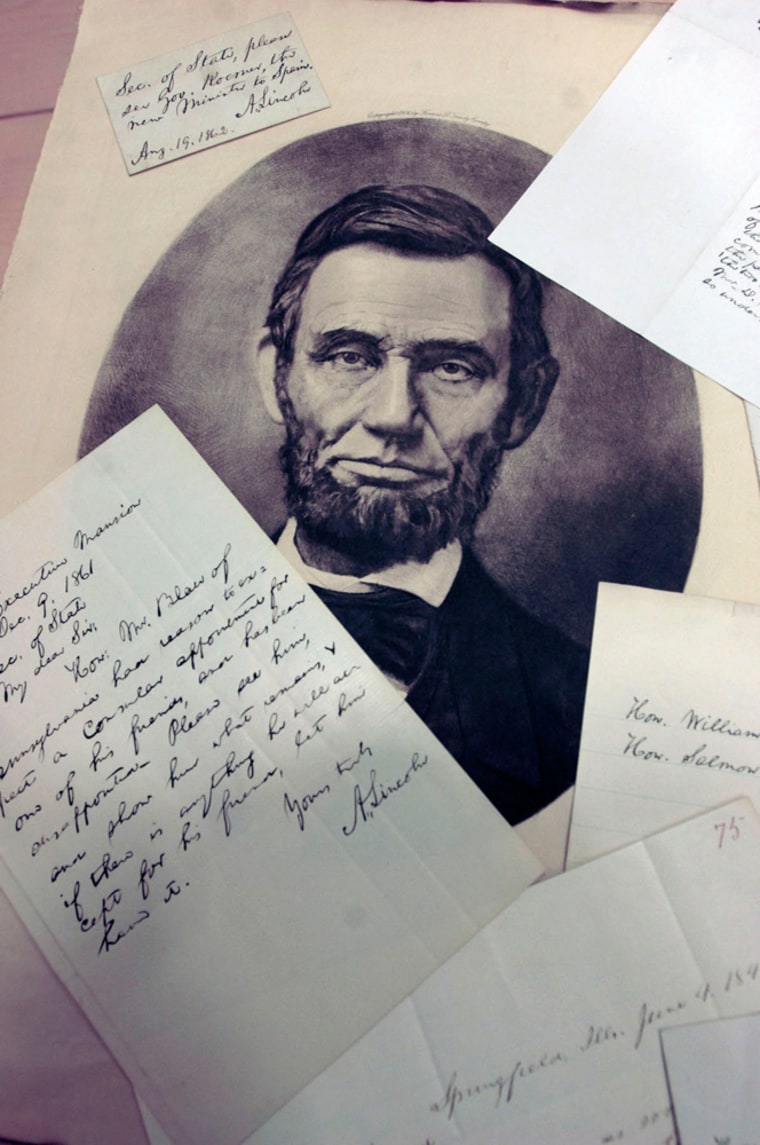 Sec. of State, please
see Gov. Koerner, the
new Minister to Spain.
A. Lincoln
Aug. 19. 1862.
Executive Mansion
Dec. 9, 1861
Sec. of State
My dear Sir:
Hon. Mr. Blair of
Pennsylvania had reason to ex=
pect a consular appointment for
one of his friends, and has been
disappointed. Please see him,
and show him what remains, &
if there is anything he will ac
cept for his friend, let him
have it.
Yours truly
A. Lincoln
of the
Hon. William
Hon. Salmon
75
Springfield, Ills. June 4, 184